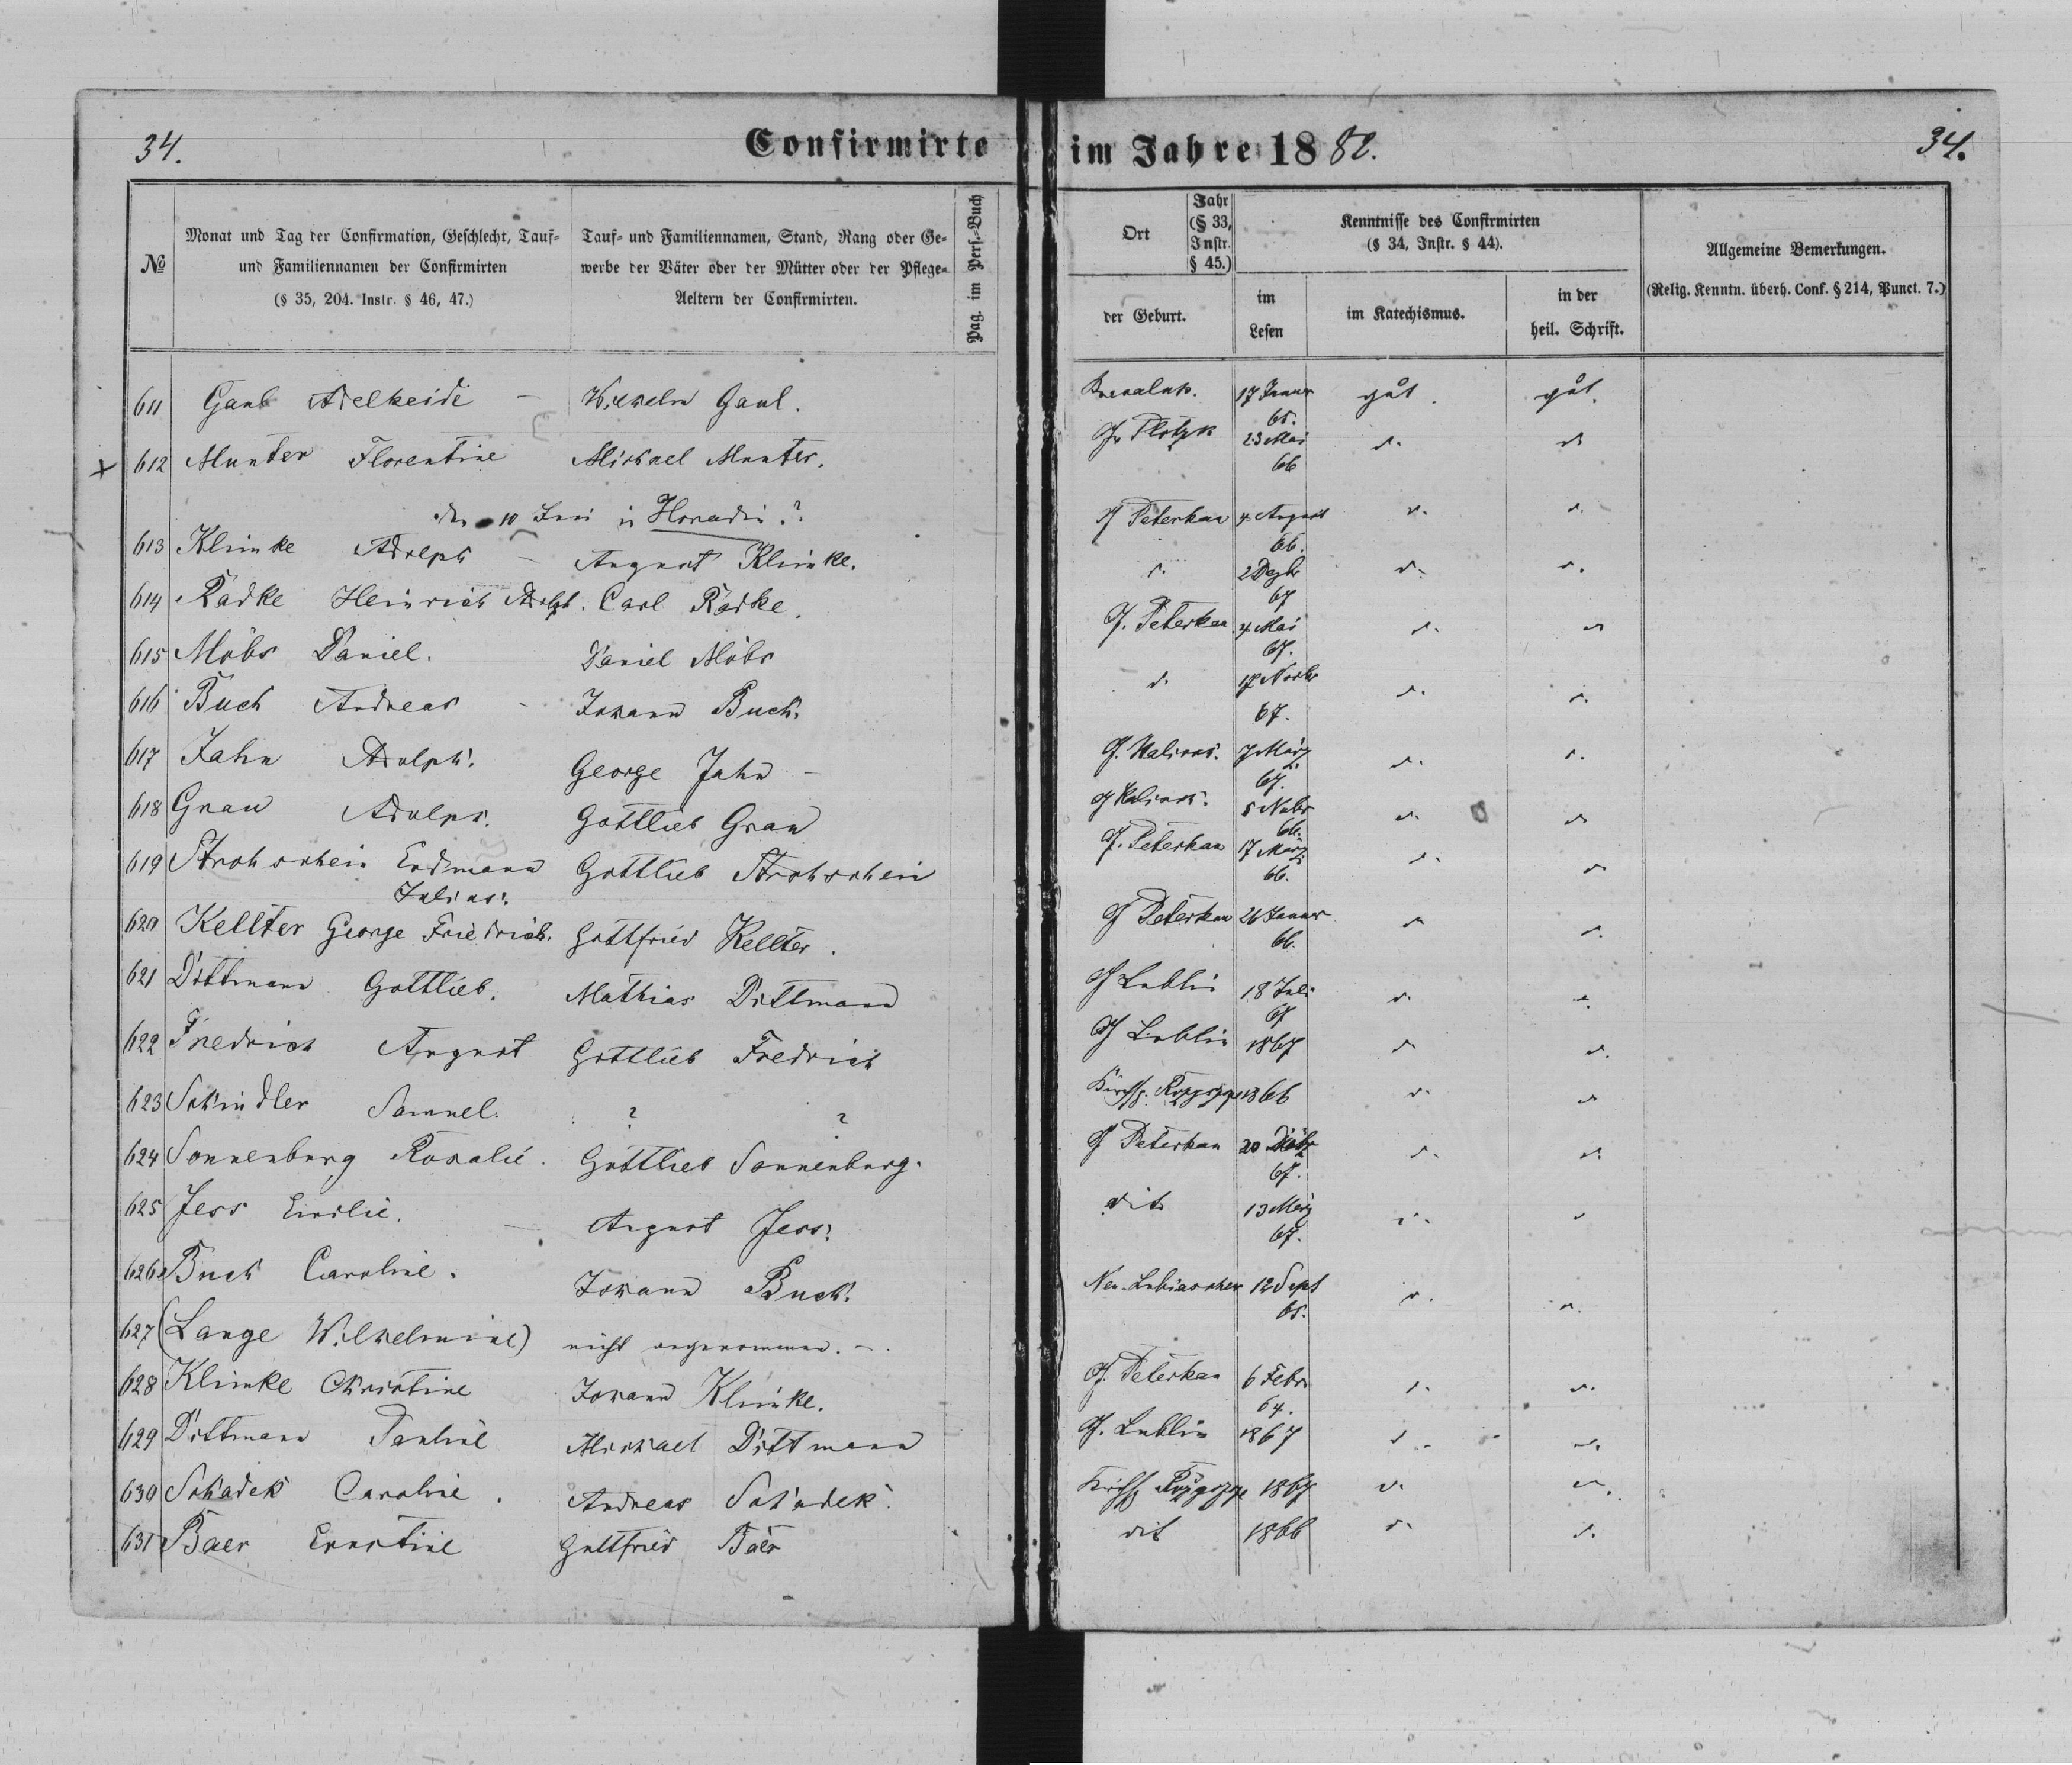 34.
Confirmirte im Jahre 1882.
34.
№
Monat und Tag der Confirmation, Geschlecht, Tauf-
und Familiennamen der Confirmirten
(§ 35, 204. Instr. § 46, 47.)
Tauf- und Familiennamen, Stand, Rang oder Ge-
werbe der Väter oder der Mütter oder der Pflege-
Aeltern der Confirmirten.
Pag. im Pers.-Buch
Ort
Jahr
(§ 33,
Instr.
§ 45.)
der Geburt.
Kenntnisse des Confirmirten
(§ 34, Instr. § 44).
im
Lesen
im Katechismus.
in der
heil. Schrift.
Allgemeine Bemerkungen.
(Relig. Kenntn. überh. Conf. § 214, Punct. 7.)
611 Adelheide - Wilhelm Gaul. 17 Januar gut. gut.
65.
+ 612 Munter Florentine Michael Munter. G. Plotzk 23 Mai d. d.
66
10 in Horadin?
613 Klimke Adolph - August Klimke. G Peterkau 4. August d. d.
66.
614 Radke Heinrich Adolph. Carl Radke. d. 2 Dezbr d. d.
67
615 Möbs Daniel. Daniel Möbs G. Peterkau 4. Mai d. d.
67.
616 Buch Andreas - Johann Buch. d. 17 Novbr d. d.
67.
617 Jahn Adolph. George Jahn - G. 7 März d. d.
67.
618 Grau Adolph. Gottlieb Grau G 5 d. d.
66.
619 Strohschein Erdmann Gottlieb Strohschein G. Peterkau 17 März d. d.
Julius. 66.
620 Kellter George Friedrich. Gottfried Kellter. G Peterkau 26 Januar d. d.
66.
621 Dittmann Gottlieb. Mathias Dittmann G Lublin 18 Juli d. d.
67
622 Friedrich August Gottlieb Fredrich G Lublin 1867 d. d.
623 Schindler Samuel. ? ? Kirchsp. 1866 d. d.
624 Sonnenburg Rosalie. Gottlieb Sonnenburg. G Peterkau 20 d. d.
67.
625 Jess Emilie. August Jess. dito 13 März d. d.
67.
626 Buch Caroline. Johann Buch. 12 Sept d. d.
65.
627 (Lange Wilhelmine) nicht angenommen. -.
628 Klimke Christine Johann Klimke. G. Peterkau 6 Febr. d. d.
64.
629 Dittmann Pauline Michael Dittmann G. Lublin 1867 d. d.
630 Schadek Caroline. Andreas Schadek. Kirchsp 1867 d. d.
631 Baer Ernstine Gottfried Baer dit 1866 d. d.